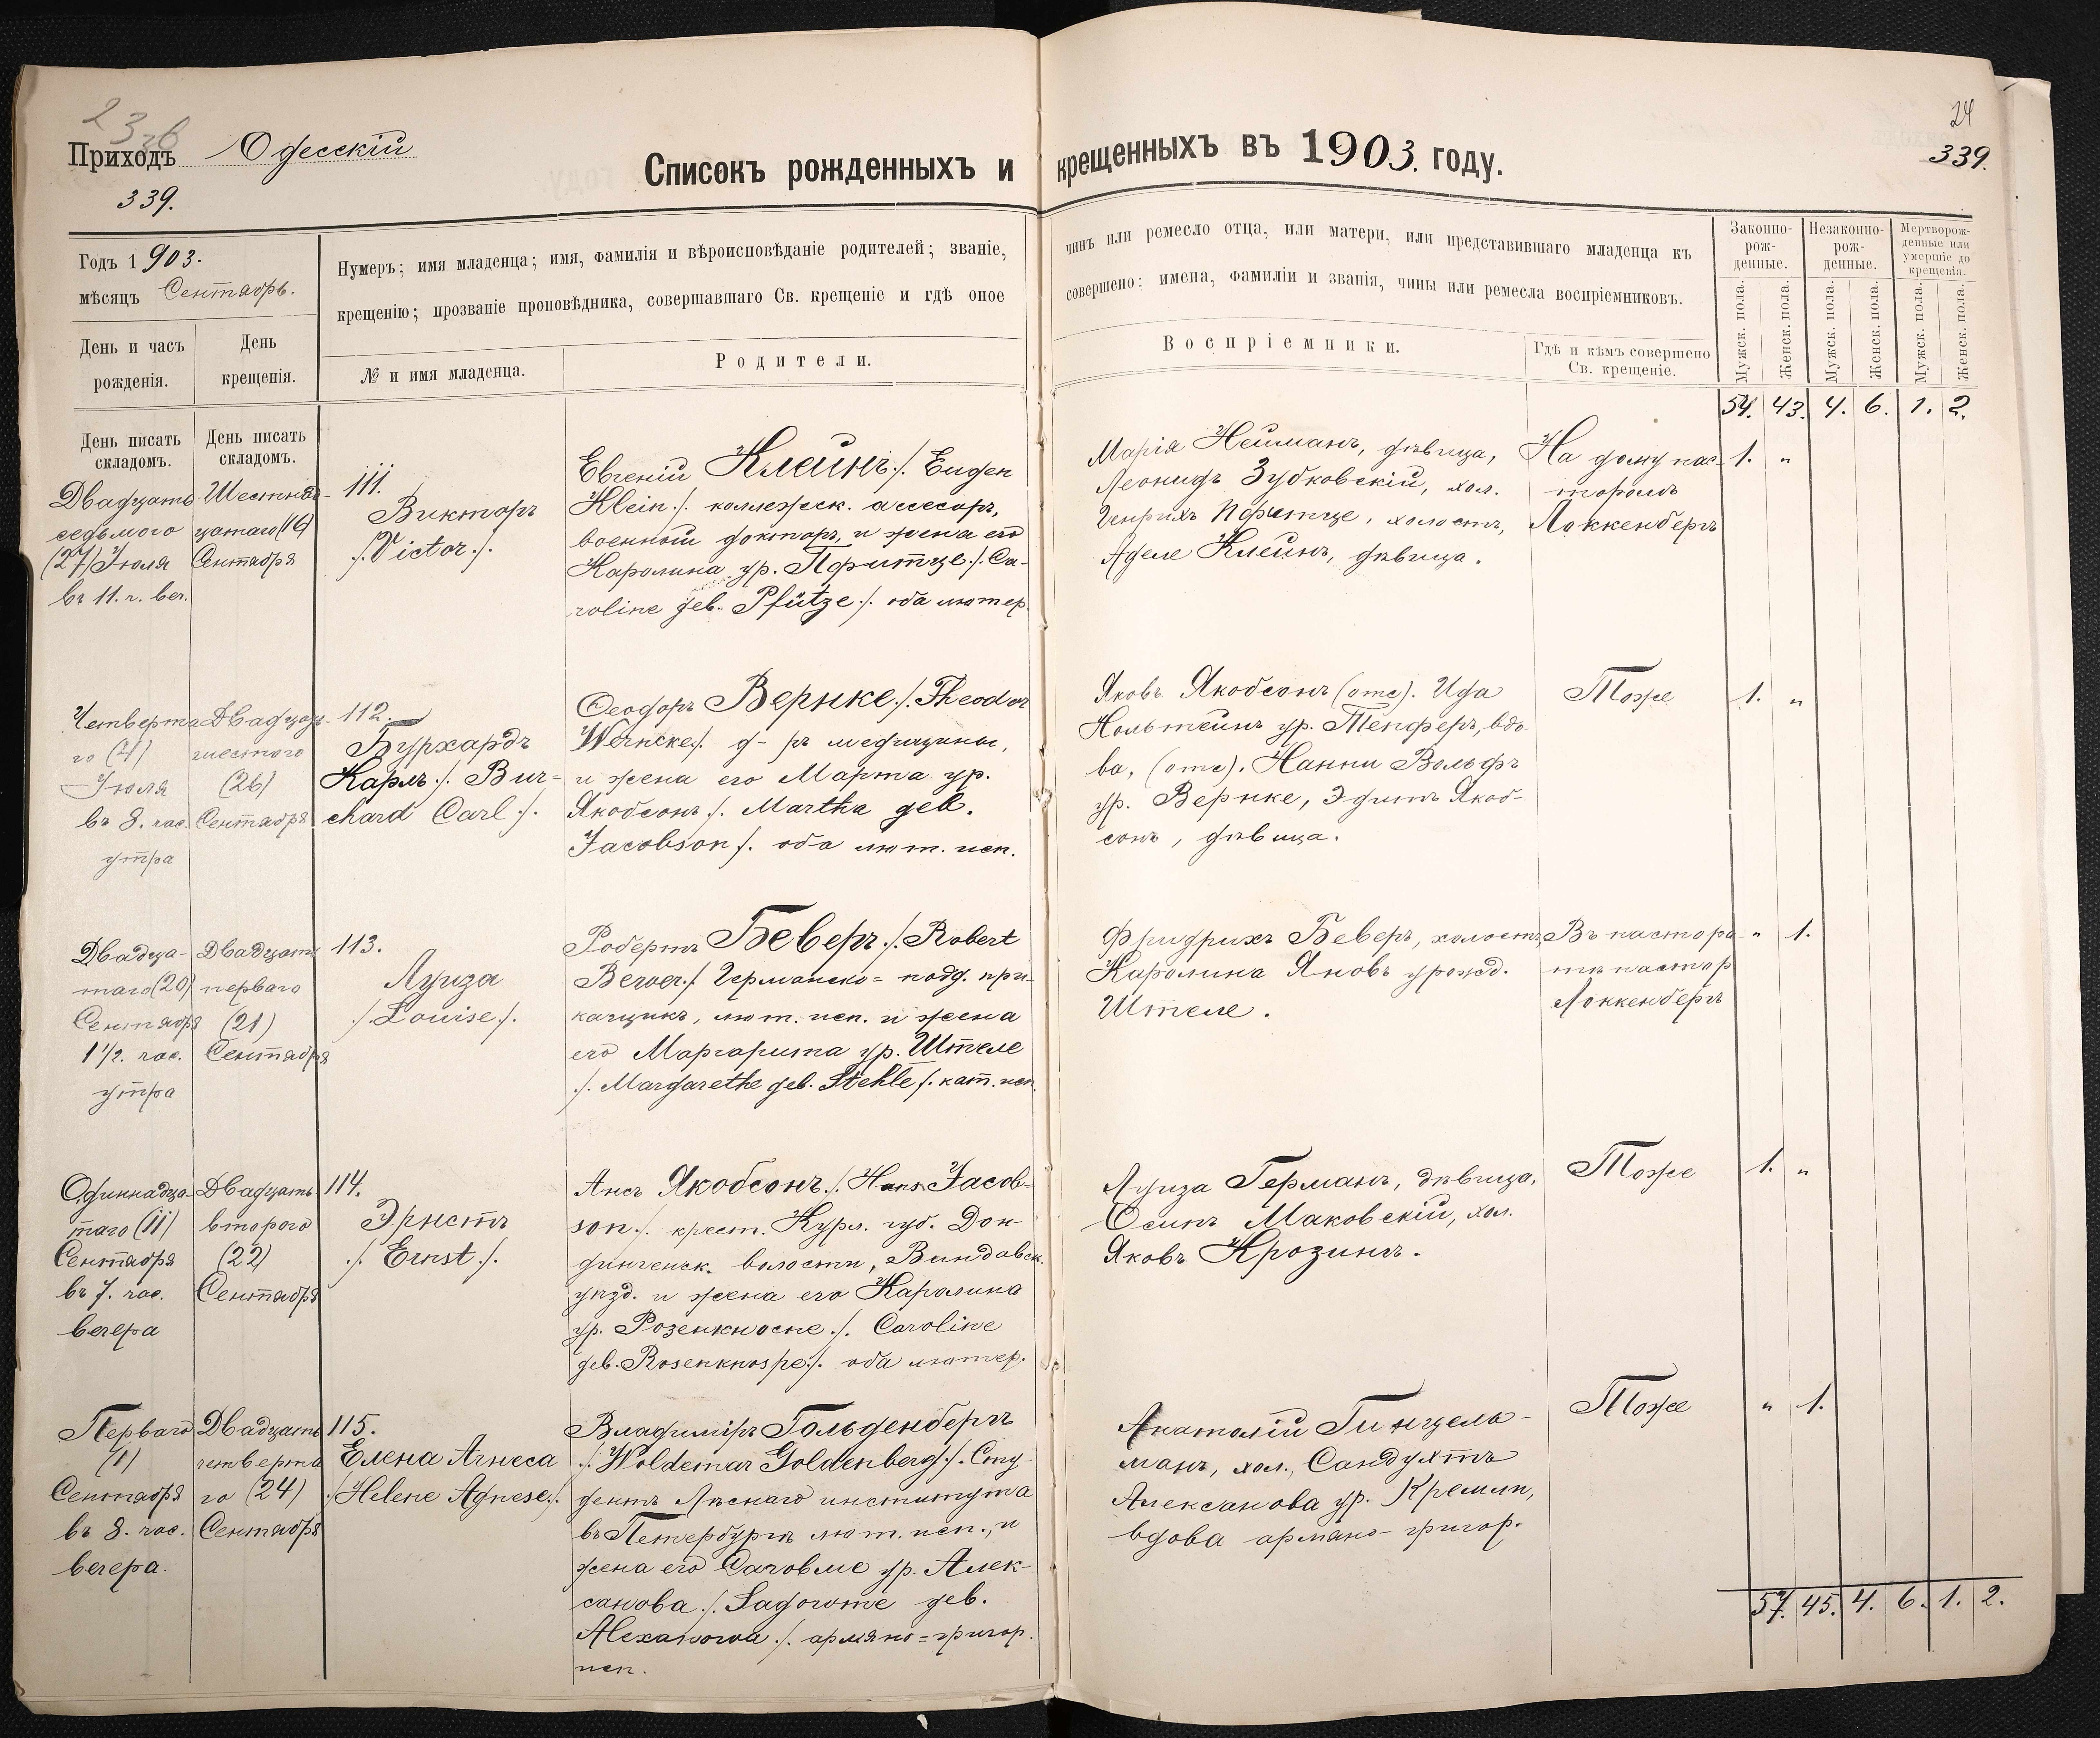 23об
Приходъ Одесскій
339.
Списокъ рожденныхъ и крещенныхъ въ 1903. году.
24
339.
Годъ 1903.
мѣсяцъ Сентябрь.
День и часъ рожденія.
День крещенія.
Нумеръ; имя младенца; имя, фамилія и вѣроисповѣданіе родителей; званіе,
чинъ или ремесло отца, или матери, или представившаго младенца къ
крещенію; прозваніе проповѣдника, совершавшаго Св. крещеніе и гдѣ оное
совершено; имена, фамиліи и званія, чины или ремесла воспріемниковъ.
№ и имя младенца.
Родители.
Воспріемники.
Гдѣ и кѣмъ совершено
Св. крещеніе.
Законно-
рож-
денные.
Незаконно-
рож-
денные.
Мертворож-
денные или
умершіе до
крещенія.
Мужск. пола.
Женск. пола.
Мужск. пола.
Женск. пола.
Мужск. пола.
Женск. пола.
54. 43. 4. 6. 1. 2.
День писать
складомъ.
День писать
складомъ.
Двадцать
седьмого
(27) Іюля
въ 11. ч. веч.
Шестнад-
цатаго (16)
Сентября
111.
Викторъ
/. Victor ./.
Евгеній Клейнъ ./. Eugen
Klein ./. коллежск. ассесоръ,
военный докторъ, и жена его
Каролина ур. Пфитце ./. Ca-
roline geb. Pfütze ./. оба лютер.
Марія Нейманъ, дѣвица,
Леонидъ Зубковскій, хол.
Генрихъ Пфитце, холостъ,
Аделе Клейнъ, дѣвица.
На дому пас-
торомъ
Локкенбергъ
1. "
Четверта-
го (4)
Іюля
въ 8. час.
утра
Двадцать
шестого
(26)
Сентября
112.
Бурхардъ
Карлъ ./. Bur-
chard Carl ./.
Ѳеодоръ Вернке ./. Theodor
Werncke ./. д-ръ медицины,
и жена его Марта ур.
Якобсонъ ./. Martha geb.
Jacobson ./. оба лют. исп.
Яковъ Якобсонъ (отс). Ида
Нольтейнъ ур. Тепферъ, вдо-
ва, (отс). Нанни Вольфъ
ур. Вернке, Эдитъ Якоб-
сонъ, дѣвица.
Тоже
1. "
Двадца-
таго (20)
Сентября
1 1/2. час.
утра
Двадцать
перваго
(21)
Сентября
113.
Луиза
./. Louise ./.
Робертъ Беверъ ./. Robert
Bewer ./. Германско-подд. при-
кащикъ, лют. исп. и жена
его Маргарита ур. Штеле
./. Margarethe geb. Stehle ./. кат. исп.
Фридрихъ Беверъ, холостъ,
Каролина Яновъ урожд.
Штеле.
Въ пастора-
тѣ пастор
Локкенбергъ
" 1.
Одиннадца-
таго (11)
Сентября
въ 7. час.
вечера
Двадцать
второго
(22)
Сентября
114.
Эрнстъ
./. Ernst ./.
Ансъ Якобсонъ ./. Hans Jacob-
son ./. крест. Курл. губ. Дон-
дингенск. волости, Виндавск.
уѣзд. и жена его Каролина
ур. Розенкноспе ./. Caroline
geb. Rosenknospe ./. оба лютер.
Луиза Германъ, дѣвица,
Осипъ Маковскій, хол.
Яковъ Крозинъ.
Тоже
1. "
Перваго
(1)
Сентября
въ 8. час.
вечера.
Двадцать
четверта
го (24)
Сентября
115.
Елена Агнеса
./. Helene Agnese ./.
Владиміръ Гольденбергъ
./. Woldemar Goldenberg ./. Сту-
дентъ Лѣснаго института
въ Петербургѣ лют. исп., и
жена его ур. Алек-
санова ./. geb.
Alexanowa ./. армяно-григор.
исп.
Анатолій Гинцель-
манъ, хол., Сандухтъ
Алексанова ур. Кремли,
вдова армяно-григор.
Тоже
" 1.
57. 45. 4. 6. 1. 2.